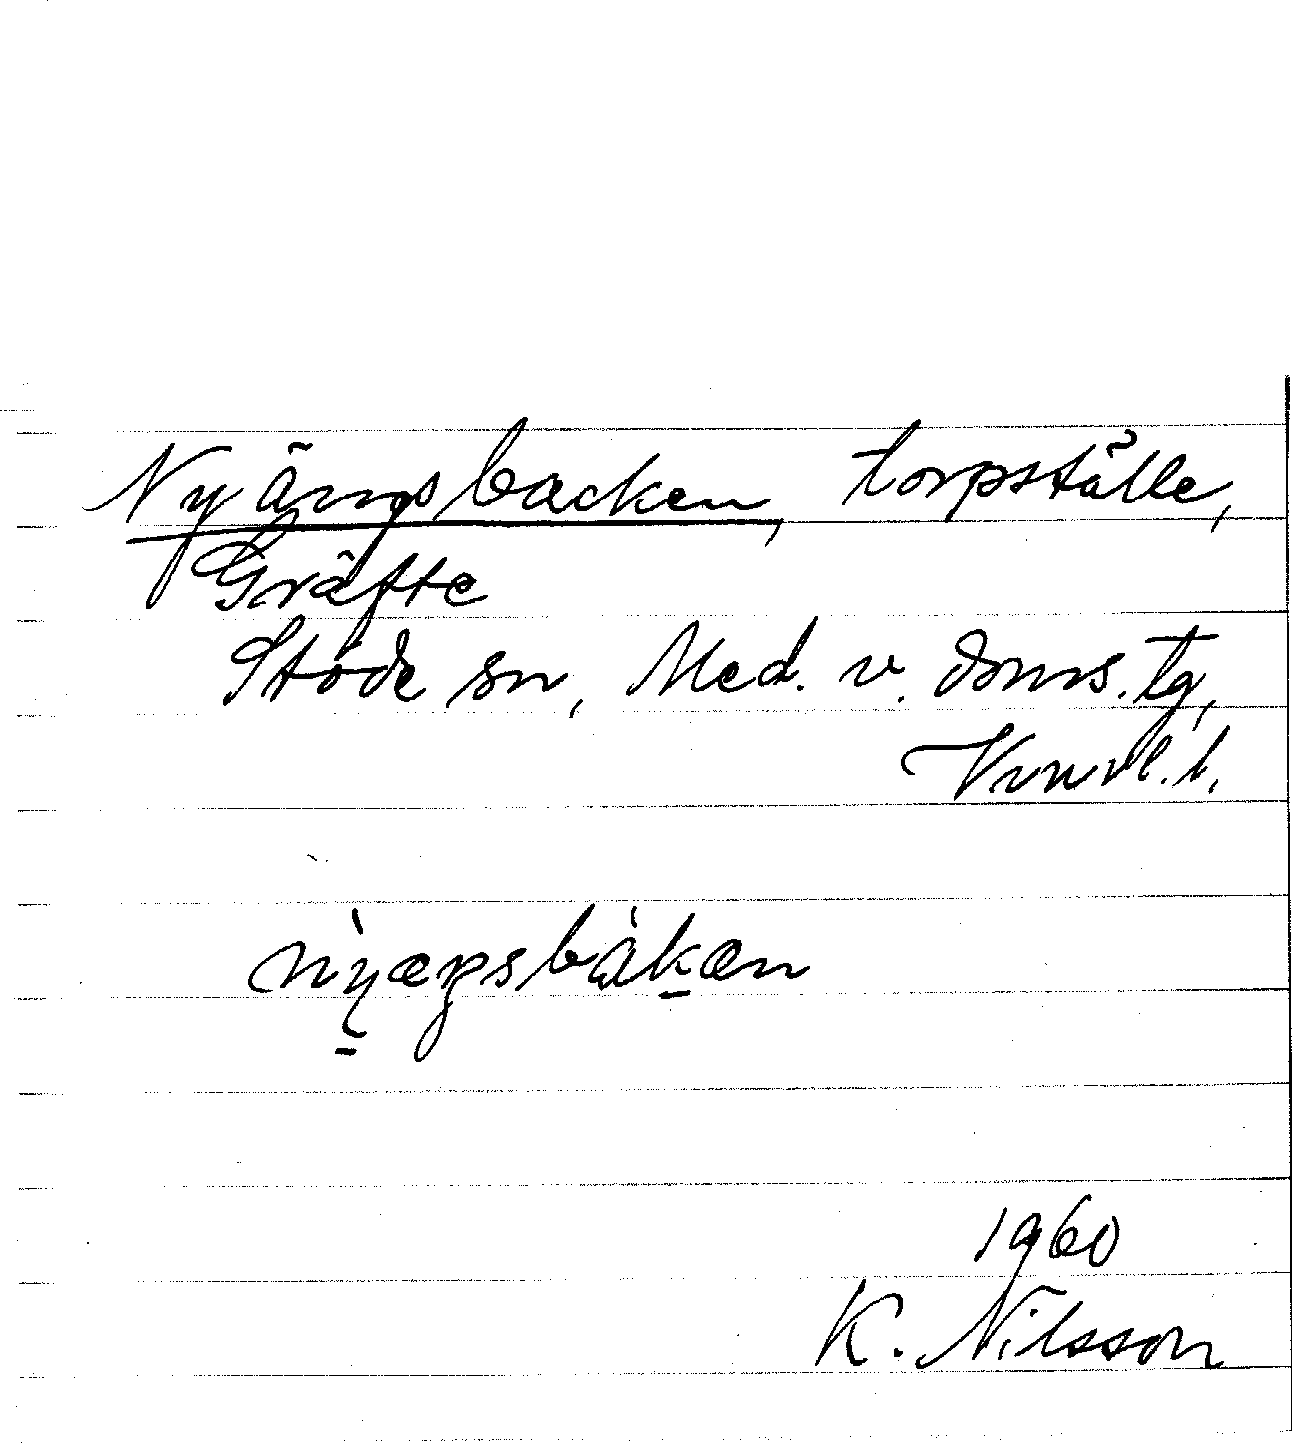 Nyängsbacken, torpställe,
Gräfte
Stöde sn, Med. v. doms. tg,
Vnrl. l.
nỳæŋsbàkæn
1960
K. Nilsson